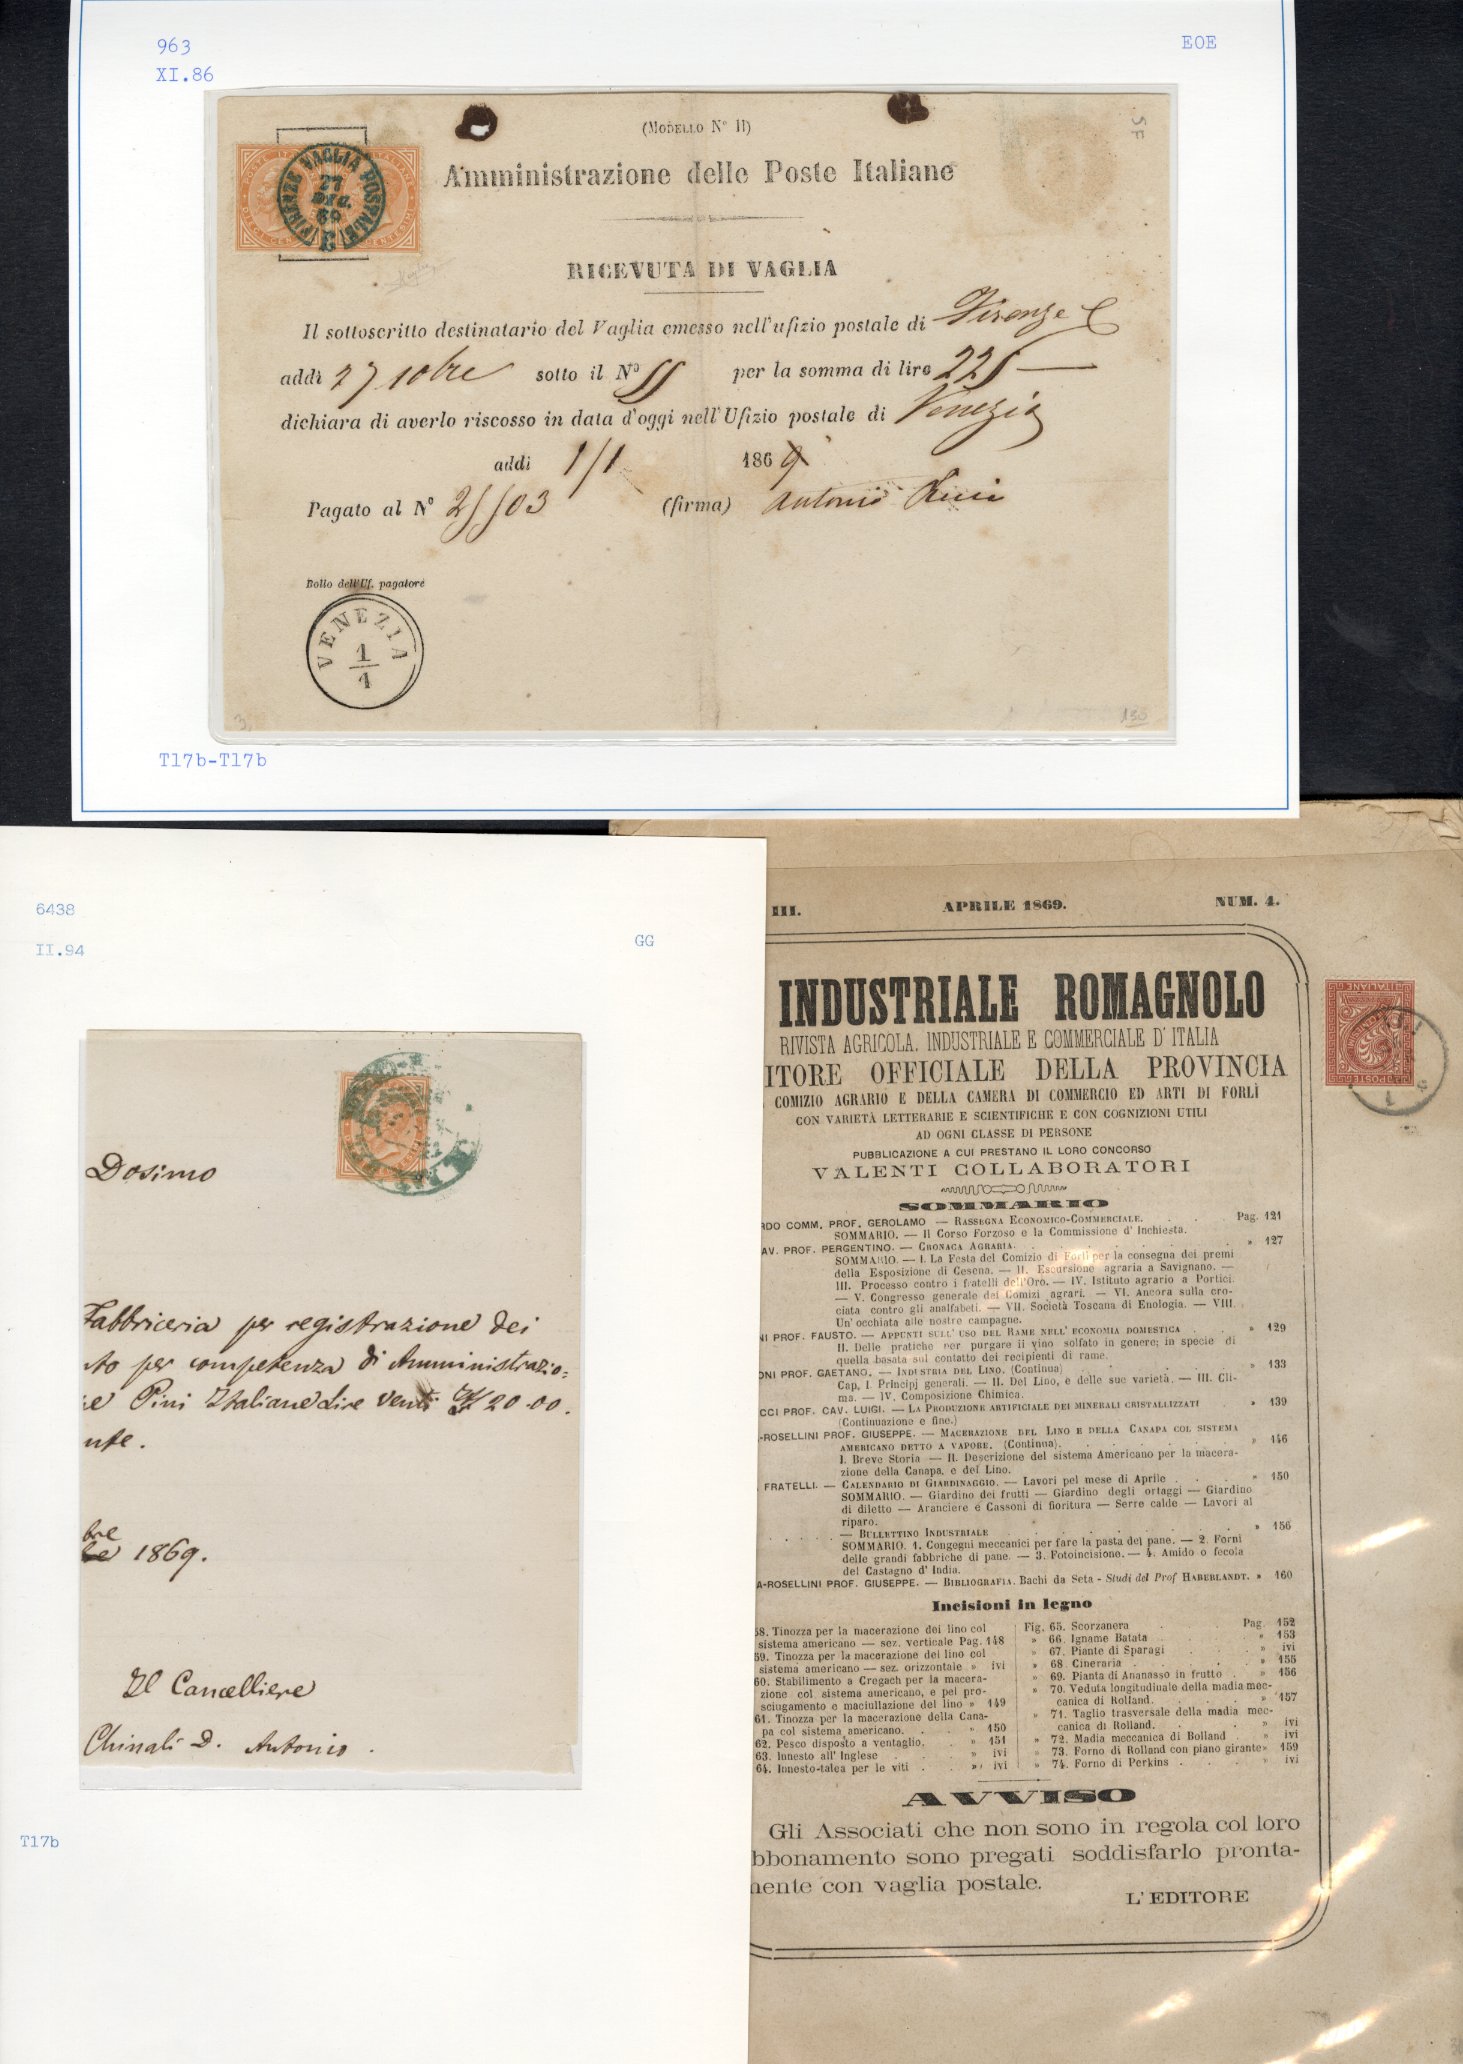 963
XI.86
EOE
(MODELLO N° 11)
Amministrazione delle Poste Italiane
FIRENZE VAGLIA POSTALI
27
DIC.
69
RICEVUTA DI VAGLIA
Il sottoscritto destinatario del Vaglia emesso nell'ufizio postale di Firenze
addì 27 10bre sotto il N° 55 per la somma di lire 225
dichiara di averlo riscosso in data d'oggi nell'Ufizio postale di Venezia
addì 1/1 186
Pagato al N° (firma) Antonio
Bollo dell'Uf. pagatore
VENEZIA
1
1
3.
150
SF
T17b-T17b
6438
II.94
GG
Dosimo
Fabbriceria per registrazione dei
per competenza di Amministrazio=
Pini Italiane Lire venti 20.00.
nte.
bre
1869.
Il Cancelliere
Chinali D. Antonio.
T17b
III. APRILE 1869. NUM. 4.
INDUSTRIALE ROMAGNOLO
RIVISTA AGRICOLA, INDUSTRIALE E COMMERCIALE D'ITALIA
ITORE OFFICIALE DELLA PROVINCIA
COMIZIO AGRARIO E DELLA CAMERA DI COMMERCIO ED ARTI DI FORLÌ
CON VARIETÀ LETTERARIE E SCIENTIFICHE E CON COGNIZIONI UTILI
AD OGNI CLASSE DI PERSONE
PUBBLICAZIONE A CUI PRESTANO IL LORO CONCORSO
VALENTI COLLABORATORI
SOMMARIO
RDO COMM. PROF. GEROLAMO — RASSEGNA ECONOMICO-COMMERCIALE. Pag. 121
SOMMARIO. — Il Corso Forzoso e la Commissione d'Inchiesta.
AV. PROF. PERGENTINO. — CRONACA AGRARIA. » 127
SOMMARIO. — I. La Festa del Comizio di Forlì per la consegna dei premi
della Esposizione di Cesena. — II. Escursione agraria a Savignano. —
III. Processo contro i fratelli dell'Oro. — IV. Istituto agrario a Portici.
— V. Congresso generale dei Comizi agrari. — VI. Ancora sulla cro-
ciata contro gli analfabeti. — VII. Società Toscana di Enologia. — VIII.
Un'occhiata alle nostre campagne.
NI PROF. FAUSTO. — APPUNTI SULL'USO DEL RAME NELL'ECONOMIA DOMESTICA » 129
II. Delle pratiche per purgare il vino solfato in genere; in specie di
quella basata sul contatto dei recipienti di rame.
ONI PROF. GAETANO. — INDUSTRIA DEL LINO. (Continua) » 133
Cap. I. Principj generali. — II. Del Lino, e delle sue varietà. — III. Cli-
ma. — IV. Composizione Chimica.
CCI PROF. CAV. LUIGI. — LA PRODUZIONE ARTIFICIALE DEI MINERALI CRISTALLIZZATI » 139
(Continuazione e fine.)
A-ROSELLINI PROF. GIUSEPPE. — MACERAZIONE DEL LINO E DELLA CANAPA COL SISTEMA
AMERICANO DETTO A VAPORE. (Continua). » 146
I. Breve Storia — II. Descrizione del sistema Americano per la macera-
zione della Canapa, e del Lino.
FRATELLI. — CALENDARIO DI GIARDINAGGIO. — Lavori pel mese di Aprile » 150
SOMMARIO. — Giardino dei frutti — Giardino degli ortaggi — Giardino
di diletto — Aranciere e Cassoni di fioritura — Serre calde — Lavori al
riparo.
— BULLETTINO INDUSTRIALE » 156
SOMMARIO. 1. Congegni meccanici per fare la pasta del pane. — 2. Forni
delle grandi fabbriche di pane. — 3. Fotoincisione. — 4. Amido o fecola
del Castagno d'India.
A-ROSELLINI PROF. GIUSEPPE. — BIBLIOGRAFIA. Bachi da Seta - Studi del Prof HABERLANDT. » 160
Incisioni in legno
58. Tinozza per la macerazione del lino col
sistema americano — sez. verticale Pag. 148
59. Tinozza per la macerazione del lino col
sistema americano — sez. orizzontale » ivi
60. Stabilimento a Cregach per la macera-
zione col sistema americano, e pel pro-
sciugamento e maciullazione del lino » 149
61. Tinozza per la macerazione della Cana-
pa col sistema americano. » 150
62. Pesco disposto a ventaglio. » 151
63. Innesto all'Inglese » ivi
64. Innesto-talea per le viti » ivi
Fig. 65. Scorzanera Pag. 152
» 66. Igname Batata » 153
» 67. Piante di Sparagi » ivi
» 68. Cineraria » 155
» 69. Pianta di Ananasso in frutto » 156
» 70. Veduta longitudinale della madia mec-
canica di Rolland. » 157
» 71. Taglio trasversale della madia mec-
canica di Rolland. » ivi
» 72. Madia meccanica di Bolland » ivi
» 73. Forno di Rolland con piano girante » 159
» 74. Forno di Perkins » ivi
AVVISO
Gli Associati che non sono in regola col loro
bbonamento sono pregati soddisfarlo pronta-
mente con vaglia postale.
L'EDITORE